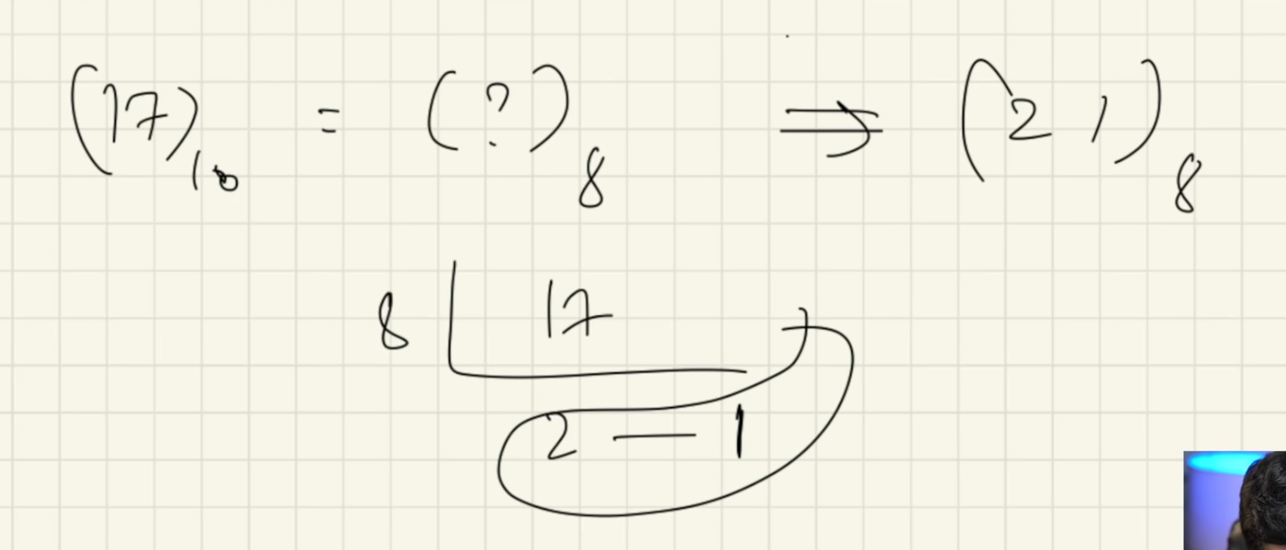 (17)₁₀ = (?)₈ ⇒ (21)₈
8 17
2 — 1